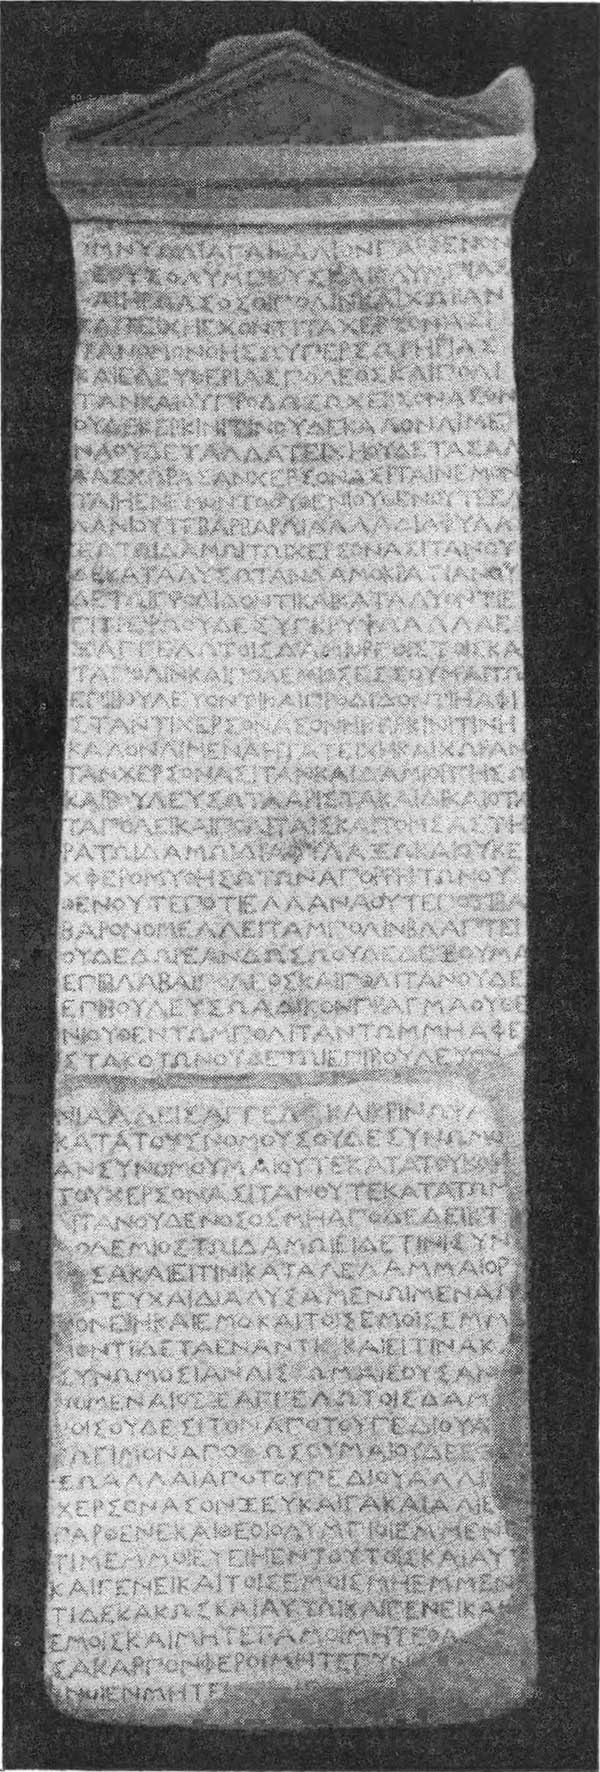 ΟΜΝΥΩΔΙΑΓΑΝΑΛΙΟΝΠΑΡΘΕΝΟΝ
ΘΕΟΥΣΟΛΥΜΠΙΟΥΣΚΑΙΟΛΥΜΠΙΑΣ
ΚΑΙΗΡΩΑΣΟΣΟΙΠΟΛΙΝΚΑΙΧΩΡΑΝ
ΚΑΙΤΕΙΧΗΕΧΟΝΤΙΤΑΧΕΡΣΟΝΑΣΙ
ΤΑΝΟΜΟΝΟΗΣΩΥΠΕΡΣΩΤΗΡΙΑΣ
ΚΑΙΕΛΕΥΘΕΡΙΑΣΠΟΛΕΟΣΚΑΙΠΟΛΙ
ΤΑΝΚΑΙΟΥΠΡΟΔΩΣΩΧΕΡΣΟΝΑΣΟΝ
ΟΥΔΕΚΕΡΚΙΝΙΤΙΝΟΥΔΕΚΑΛΟΝΛΙΜΕ
ΝΑΟΥΔΕΤΑΛΛΑΤΕΙΧΗΟΥΔΕΤΑΣΑΛ
ΛΑΣΧΩΡΑΣΑΝΧΕΡΣΟΝΑΣΙΤΑΙΝΕΜΟΝ
ΤΑΙΗΕΝΕΜΟΝΤΟΟΥΘΕΝΙΟΥΘΕΝΟΥΤΕΕΛ
ΛΑΝΙΟΥΤΕΒΑΡΒΑΡΩΙΑΛΛΑΔΙΑΦΥΛΑ
ΞΩΤΩΙΔΑΜΩΙΤΩΙΧΕΡΣΟΝΑΣΙΤΑΝΟΥ
ΔΕΚΑΤΑΛΥΣΩΤΑΝΔΑΜΟΚΡΑΤΙΑΝΟΥ
ΔΕΤΩΙΠΡΟΔΙΔΟΝΤΙΚΑΙΚΑΤΑΛΥΟΝΤΙΕ
ΠΙΤΡΕΨΩΟΥΔΕΣΥΓΚΡΥΨΩΑΛΛΑΕ
ΞΑΓΓΕΛΩΤΟΙΣΔΑΜΙΟΡΓΟΙΣΤΟΙΣΚΑ
ΤΑΠΟΛΙΝΚΑΙΠΟΛΕΜΙΟΣΕΣΣΟΥΜΑΙΤΩΙ
ΕΠΙΒΟΥΛΕΥΟΝΤΙΚΑΙΠΡΟΔΙΔΟΝΤΙΗΑΦΙ
ΣΤΑΝΤΙΧΕΡΣΟΝΑΣΟΝΗΚΕΡΚΙΝΙΤΙΝΗ
ΚΑΛΟΝΛΙΜΕΝΑΗΤΑΤΕΙΧΗΚΑΙΧΩΡΑΝ
ΤΑΝΧΕΡΣΟΝΑΣΙΤΑΝΚΑΙΔΑΜΙΟΡΓΗΣΩ
ΚΑΙΒΟΥΛΕΥΣΩΤΑΑΡΙΣΤΑΚΑΙΔΙΚΑΙΟΤΑ
ΤΑΠΟΛΕΙΚΑΙΠΟΛΙΤΑΙΣΚΑΙΤΟΝΣΑΣΤΗ
ΡΑΤΩΙΔΑΜΩΙΔΙΑΦΥΛΑΞΩΚΑΙΟΥΚΕ
ΧΦΕΡΟΜΥΘΗΣΩΤΩΝΑΠΟΡΡΗΤΩΝΟΥ
ΘΕΝΟΥΤΕΠΟΤΙΕΛΛΑΝΑΟΥΤΕΠΟΤΙΒΑΡ
ΒΑΡΟΝΟΜΕΛΛΕΙΤΑΜΠΟΛΙΝΒΛΑΠΤΕΙΝ
ΟΥΔΕΔΩΡΕΑΝΔΩΣΩΟΥΔΕΔΕΞΟΥΜΑΙ
ΕΠΙΒΛΑΒΑΙΠΟΛΕΟΣΚΑΙΠΟΛΙΤΑΝΟΥΔΕ
ΕΠΙΒΟΥΛΕΥΣΩΑΔΙΚΟΝΠΡΑΓΜΑΟΥΘΕ
ΝΙΟΥΘΕΝΤΩΜΠΟΛΙΤΑΝΤΩΜΜΗΑΦΕ
ΣΤΑΚΟΤΩΝΟΥΔΕΤΩΙΕΠΙΒΟΥΛΕΥΟΝ
ΝΙΑΛΛΕΙΣΑΓΓΕΛΩΚΑΙΚΡΙΝΩΨΑ
ΚΑΤΑΤΟΥΣΝΟΜΟΥΣΟΥΔΕΣΥΝΩΜΟ
ΑΝΣΥΝΟΜΟΥΜΑΙΟΥΤΕΚΑΤΑΤΟΥΚΟΙΝ
ΤΟΥΧΕΡΣΟΝΑΣΙΤΑΝΟΥΤΕΚΑΤΑΤΩΜ
ΛΙΤΑΝΟΥΔΕΝΟΣΟΣΜΗΑΠΟΔΕΔΕΙΚΤ
ΠΟΛΕΜΙΟΣΤΩΙΔΑΜΩΙΕΙΔΕΤΙΝΙΣΥΝ
ΣΑΚΑΙΕΙΤΙΝΙΚΑΤΑΛΕΛΑΜΜΑΙΟΡ
ΗΕΥΧΑΙΔΙΑΛΥΣΑΜΕΝΩΙΜΕΝΑΜ
ΝΟΝΕΙΗΚΑΙΕΜΟΙΚΑΙΤΟΙΣΕΜΟΙΣΕΜΜ
ΝΟΝΤΙΔΕΤΑΕΝΑΝΤΙΑΚΑΙΕΙΤΙΝΑΚΑ
ΣΥΝΩΜΟΣΙΑΝΑΙΣΘΩΜΑΙΕΟΥΣΑΝ
ΝΟΜΕΝΑΝΕΞΑΓΓΕΛΩΤΟΙΣΔΑΜ
ΓΟΙΣΟΥΔΕΣΙΤΟΝΑΠΟΤΟΥΠΕΔΙΟΥΑ
ΓΩΓΙΜΟΝΑΠΟΔΩΣΟΥΜΑΙΟΥΔΕΕΞ
ΞΩΑΛΛΑΙΑΠΟΤΟΥΠΕΔΙΟΥΑΛΛ
ΧΕΡΣΟΝΑΣΟΝΖΕΥΚΑΙΓΑΚΑΙΑΛΙΕ
ΠΑΡΘΕΝΕΚΑΙΘΕΟΙΟΛΥΜΠΙΟΙΕΜΜΕΝ
ΤΙΜΕΜΜΟΙΕΥΕΙΗΕΝΤΟΥΤΟΙΣΚΑΙΑΥΤ
ΚΑΙΓΕΝΕΙΚΑΙΤΟΙΣΕΜΟΙΣΜΗΕΜΜΕΝ
ΤΙΔΕΚΑΚΩΣΚΑΙΑΥΤΩΙΚΑΙΓΕΝΕΙΚΑ
ΕΜΟΙΣΚΑΙΜΗΤΕΓΑΜΟΙΜΗΤΕΘΑ
ΣΑΚΑΡΠΟΝΦΕΡΟΙΜΗΤΕΓΥΝ
ΜΗΤΕ